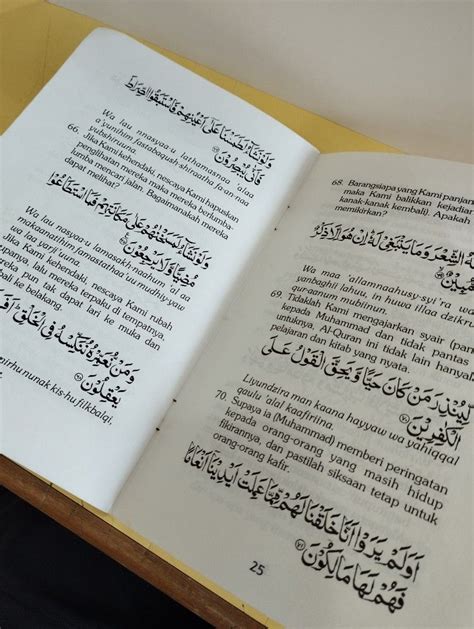 وَلَوْ نَشَآءُ لَطَمَسْنَا عَلٰٓى اَعْيُنِهِمْ فَاسْتَبَقُوا الصِّرَاطَ
فَاَنّٰى يُبْصِرُوْنَ
Wa lau nnasyaa-u lathamasnaa 'alaa
a'yunihim fastabaqush-shiraatha fa-annaa
yubshiruuna
66. Jika Kami kehendaki, nescaya Kami hapuskan
penglihatan mereka maka mereka berlumba-
lumba mencari jalan. Bagaimanakah mereka
dapat melihat?
وَلَوْ نَشَآءُ لَمَسَخْنٰهُمْ عَلٰى مَكَانَتِهِمْ فَمَا اسْتَطَاعُوْا
مُضِيًّا وَّلَا يَرْجِعُوْنَ
Wa lau nasyaa-u lamasakh-naahum 'al aa
makaanatihim famastathaa'uu mudhiy-yaw
wa laa yarji'uuna
Jika Kami kehendaki, nescaya Kami rubah
mereka terpaku di tempatnya.
pun tak dapat lari ke muka dan
ke belakang.
وَمَنْ نُّعَمِّرْهُ نُنَكِّسْهُ فِى الْخَلْقِ اَفَلَا
يَعْقِلُوْنَ
nunak kis-hu filkhalqi,
68. Barangsiapa yang Kami panjan
maka Kami balikkan kejadia
kanak-kanak kembali). Apakah
memikirkan?
الشِّعْرَ وَمَا يَنْۢبَغِيْ لَهٗ اِنْ هُوَ اِلَّا ذِكْرٌ
مُّبِيْنٌ
Wa maa 'allamnaahusy-syi'ra, wa
yanbaghii lahuu, in huwa illaa dzikru
qur'aanum mubiinun.
69. Tidaklah Kami mengajarkan syair (pan
kepada Muhammad dan tidak pantas
untuknya. Al-Quran ini tidak lain hanyala
pelajaran dan kitab yang nyata.
لِيُنْذِرَ مَنْ كَانَ حَيًّا وَّيَحِقَّ الْقَوْلُ عَلَى
الْكٰفِرِيْنَ
Liyundzira man kaana hayyaw wa yahiqqal
qaulu 'alal kaafiriina.
70. Supaya ia (Muhammad) memberi peringatan
kepada orang-orang yang masih hidup
fikirannya, dan pastilah siksaan tetap untuk
orang-orang kafir.
اَوَلَمْ يَرَوْا اَنَّا خَلَقْنَا لَهُمْ مِّمَّا عَمِلَتْ اَيْدِيْنَآ اَنْعَامًا
فَهُمْ لَهَا مَالِكُوْنَ
25